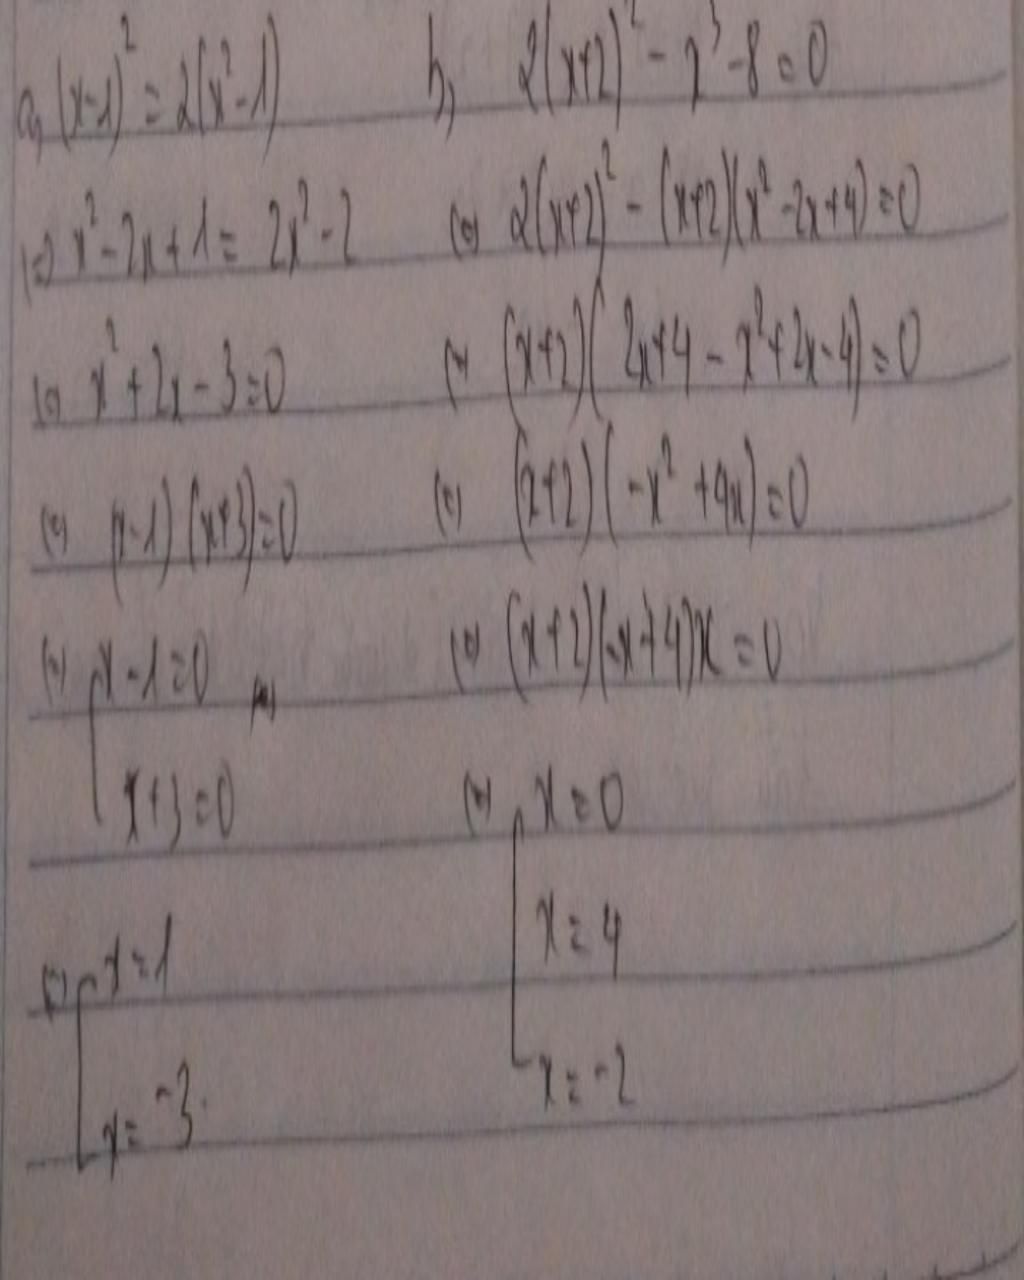 a, (x-1)² = 2(x²-1)
⇔ x²-2x+1 = 2x²-2
⇔ x²+2x-3=0
⇔ (x-1)(x+3)=0
⇔ [x-1=0
x+3=0
⇔ [x=1
x=-3.
b, 2(x+2)² - x³-8=0
⇔ 2(x+2)² - (x+2)(x²-2x+4)=0
⇔ (x+2)(2x+4-x²+2x-4)=0
⇔ (x+2)(-x²+4x)=0
⇔ (x+2)(-x+4)x=0
⇔ [x=0
x=4
x=-2